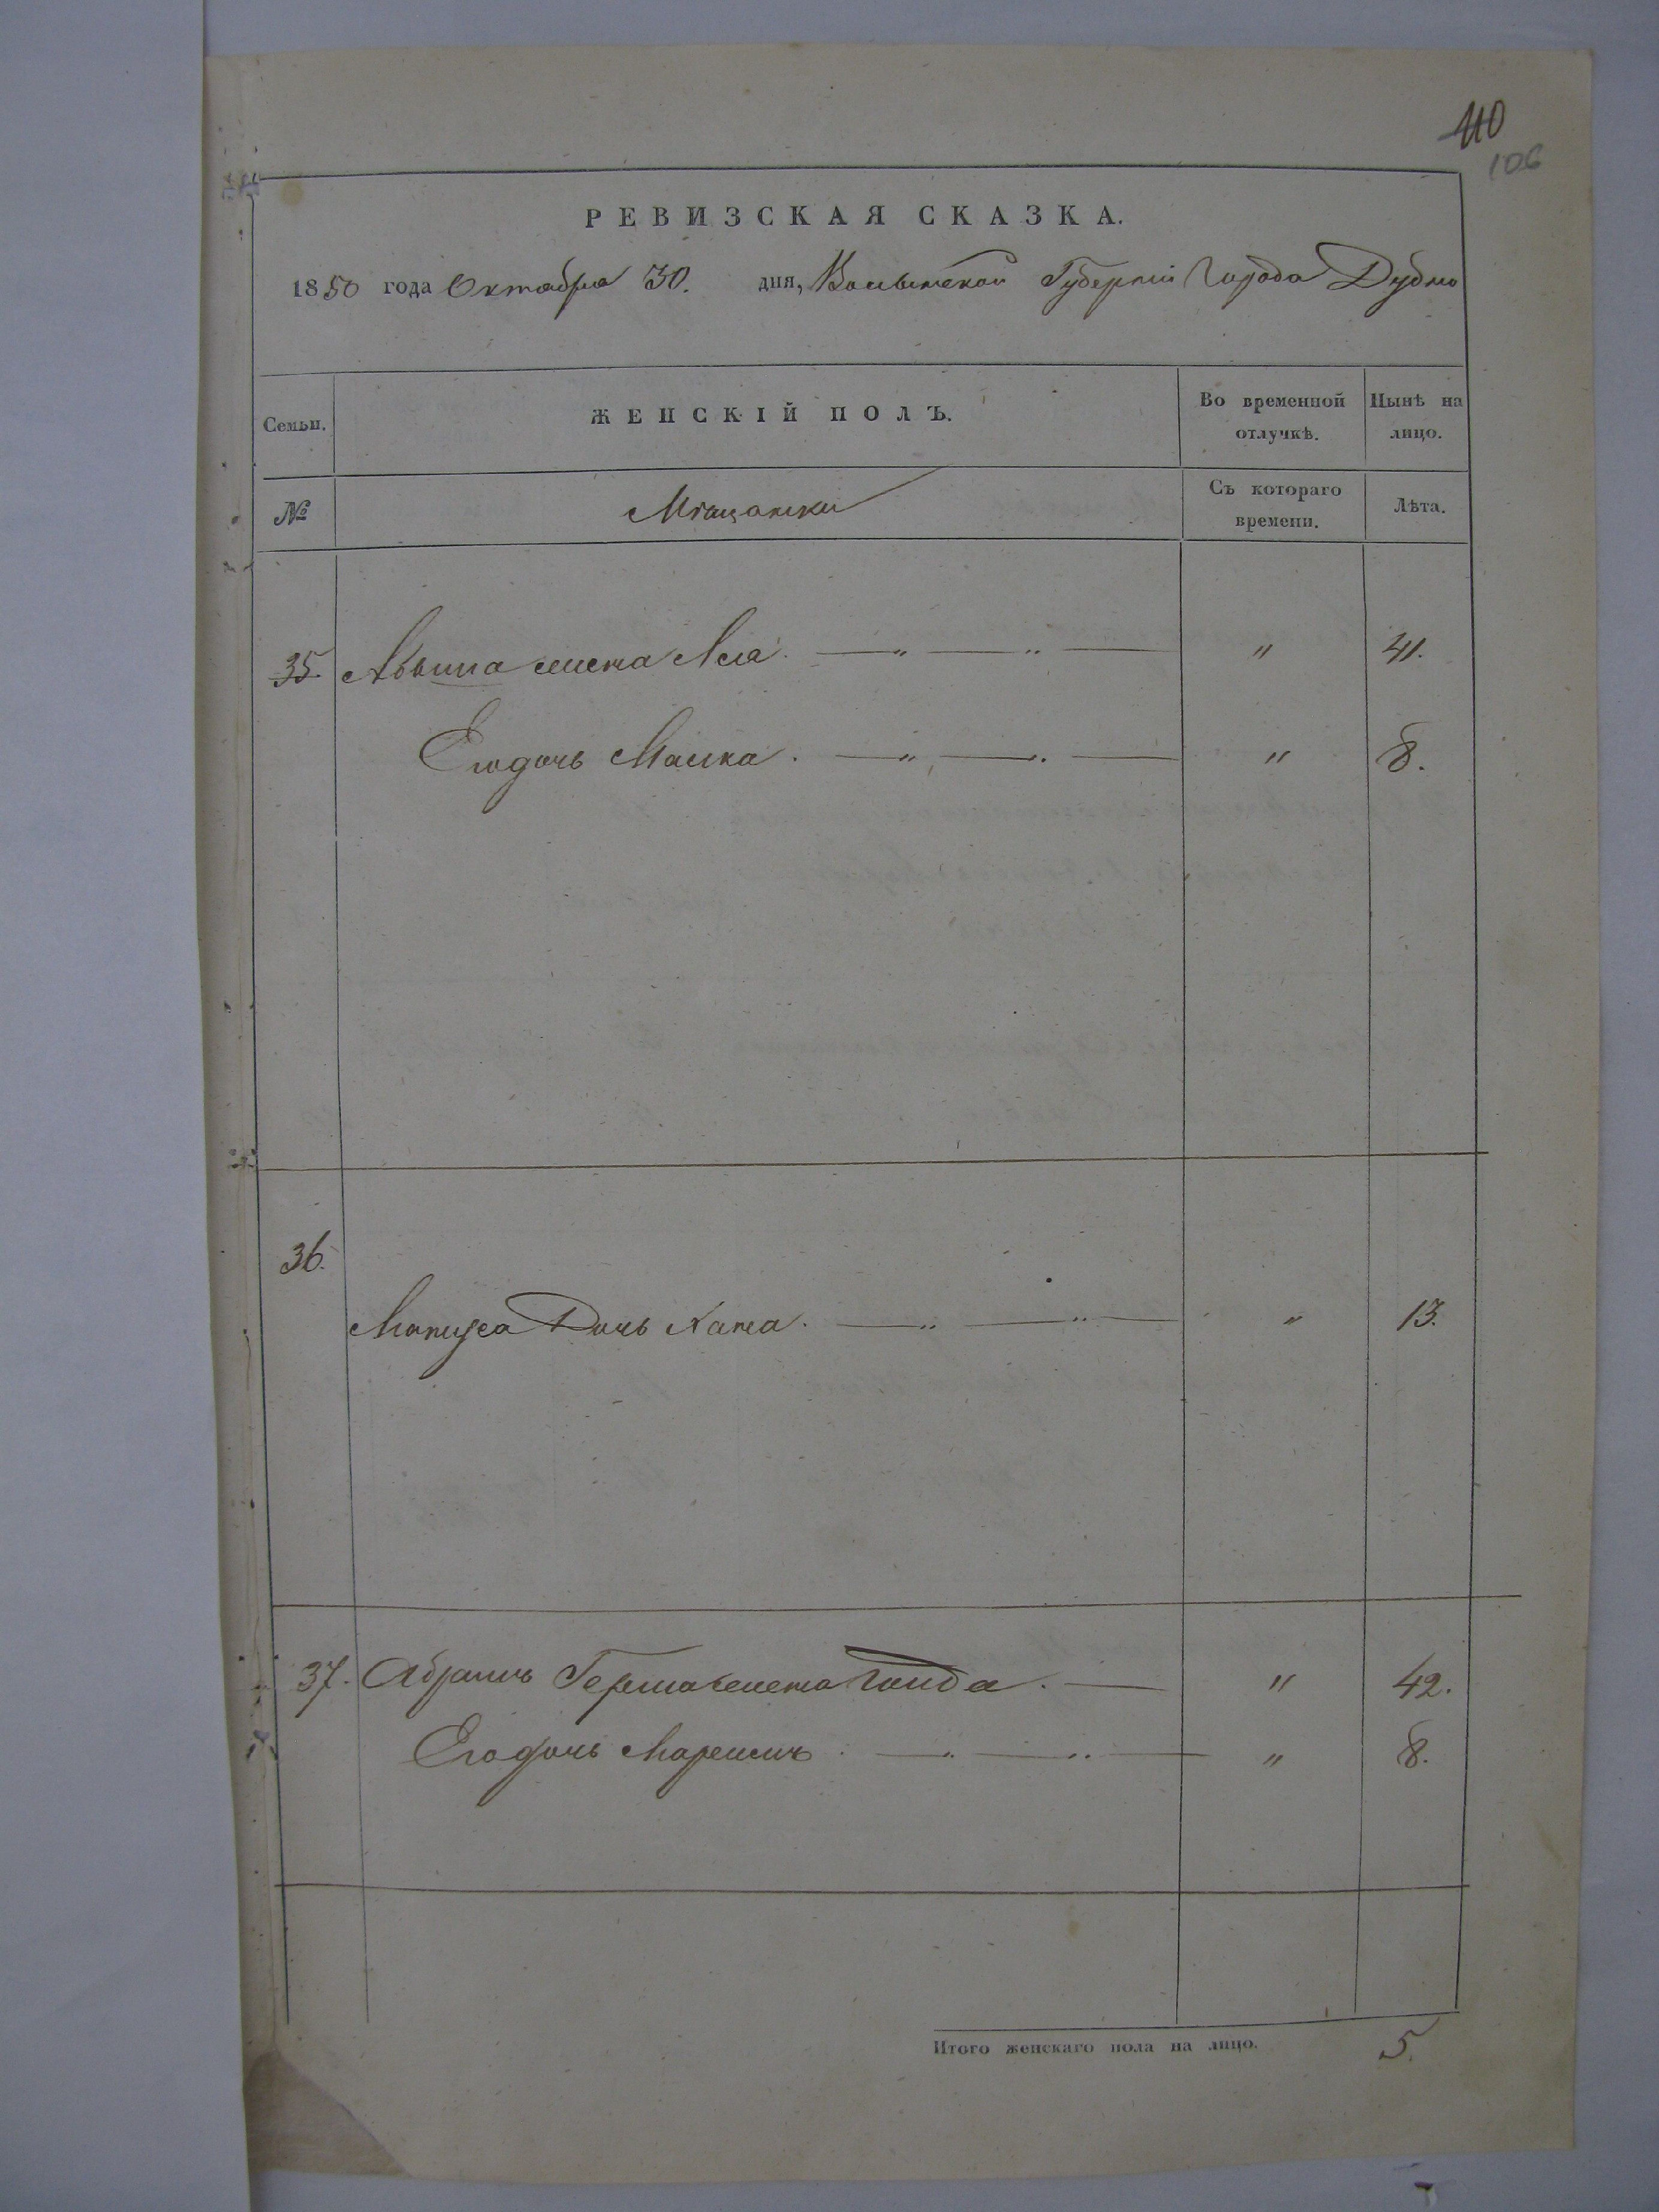 110
106
РЕВИЗСКАЯ СКАЗКА.
1850 года Октября 30. дня, Волынской Губерніи Города Дубно
Семьи. ЖЕНСКІЙ ПОЛЪ. Во временной отлучкѣ. Нынѣ на лицо.
№ Мѣщанки Съ котораго времени. Лѣта.
35. жена Лея. — „ — „ — „ 41.
Его дочь Малка. — „ — „ — „ 8.
36.
Дочь Хана. — „ — „ — „ 13.
37. Абрамъ Герша жена Голда. — „ 42.
Его дочь — „ — „ — „ 8.
Итого женскаго пола на лицо. 5.